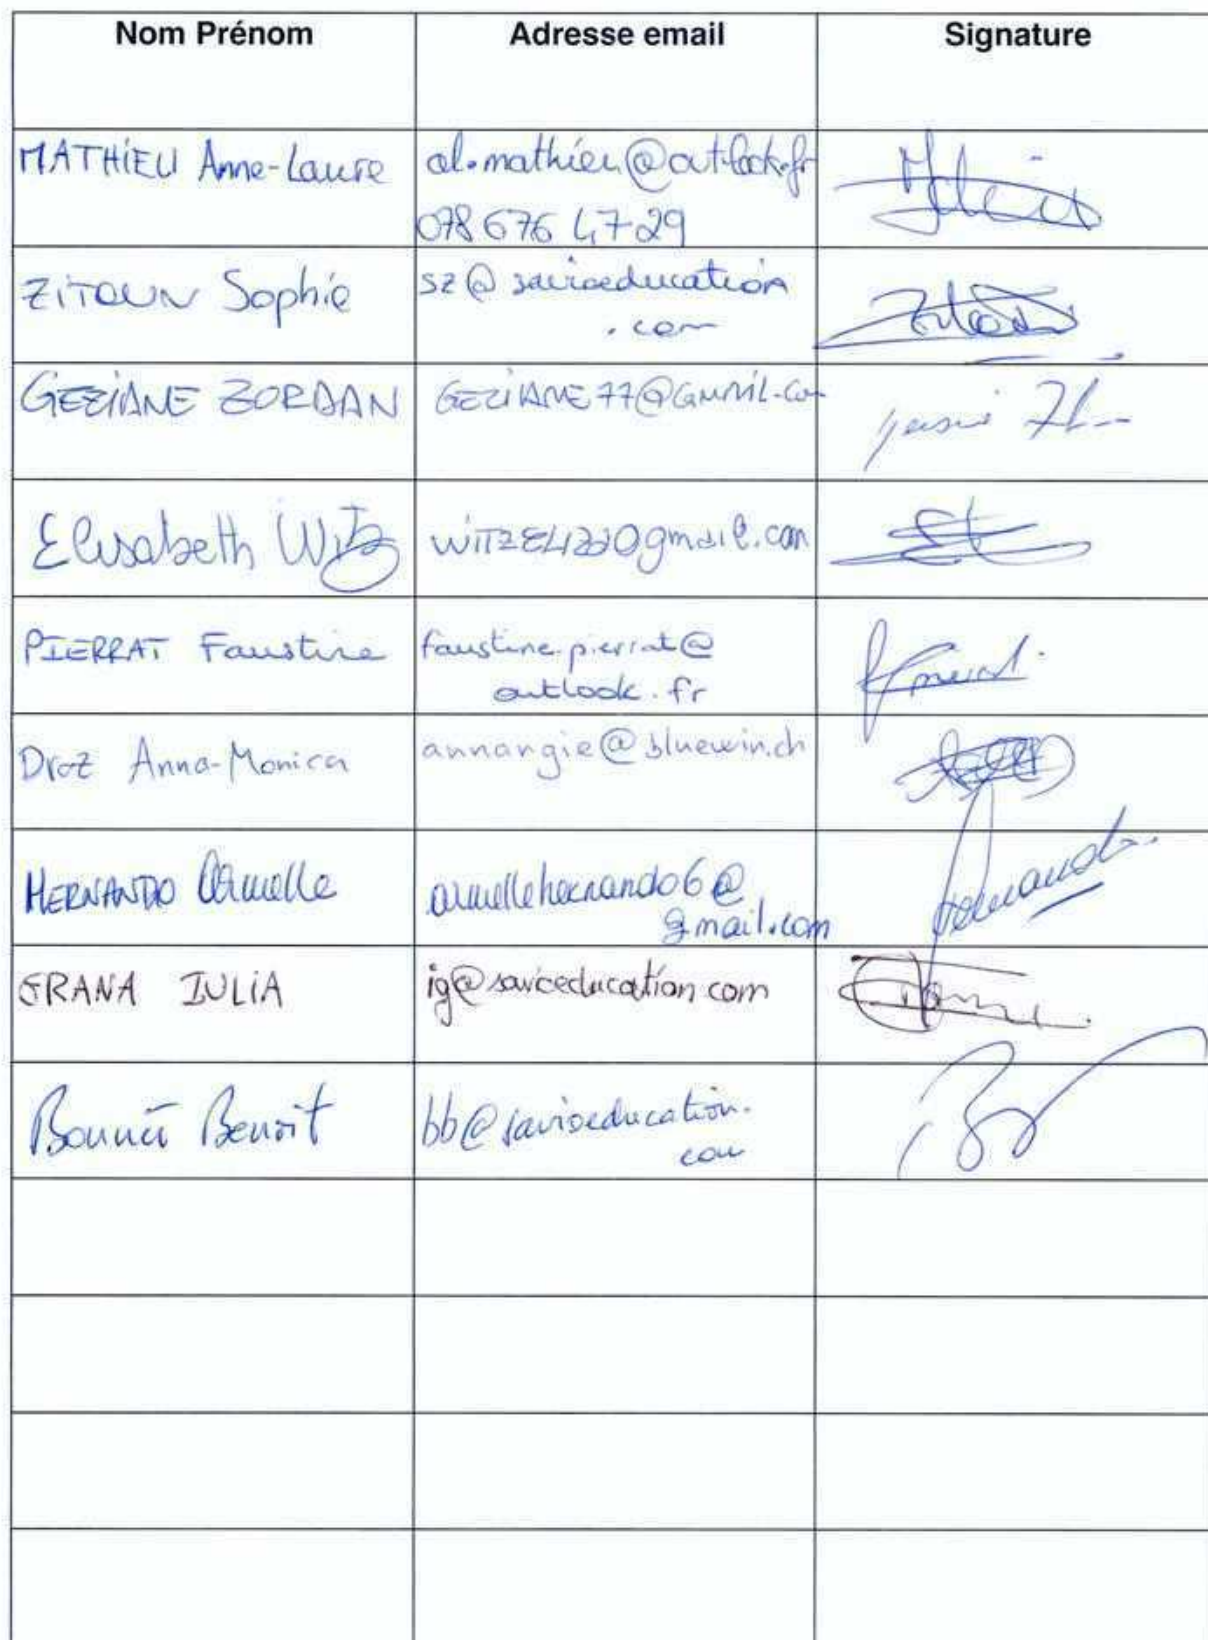 Nom Prénom Adresse email Signature
MATHIEU Anne-Laure al.mathieu@outlook.fr
078 676 47 29
ZITOUN Sophie sz@savioeducation
.com
GEZIANE ZORDAN GEZIANE77@GMAIL.COM
Elisabeth Witz
PIERRAT Faustine faustine.pierrat@
outlook.fr
Droz Anna-Monica annangie@bluewin.ch
HERNANDO Armelle armellehernando6@
gmail.com
GRANA IULIA ig@savioeducation.com
Bonnet Benoit bb@savioeducation.
com